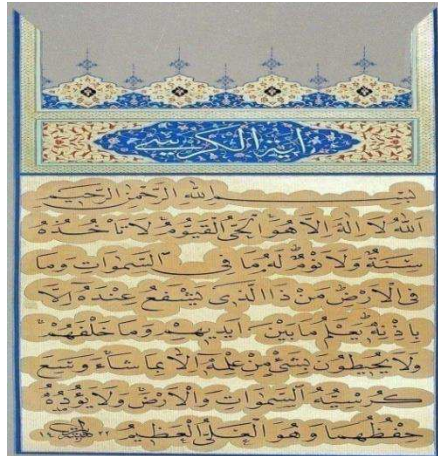 آية الكرسي
بسم الله الرحمن الرحيم
الله لا إله إلا هو الحي القيوم لا تأخذه
سنة ولا نوم له ما في السموات وما
في الأرض من ذا الذي يشفع عنده إلا
بإذنه يعلم ما بين أيديهم وما خلفهم
ولا يحيطون بشئ من علمه إلا بما شاء وسع
كرسيه السموات والأرض ولا يؤده
حفظهما وهو العلي العظيم